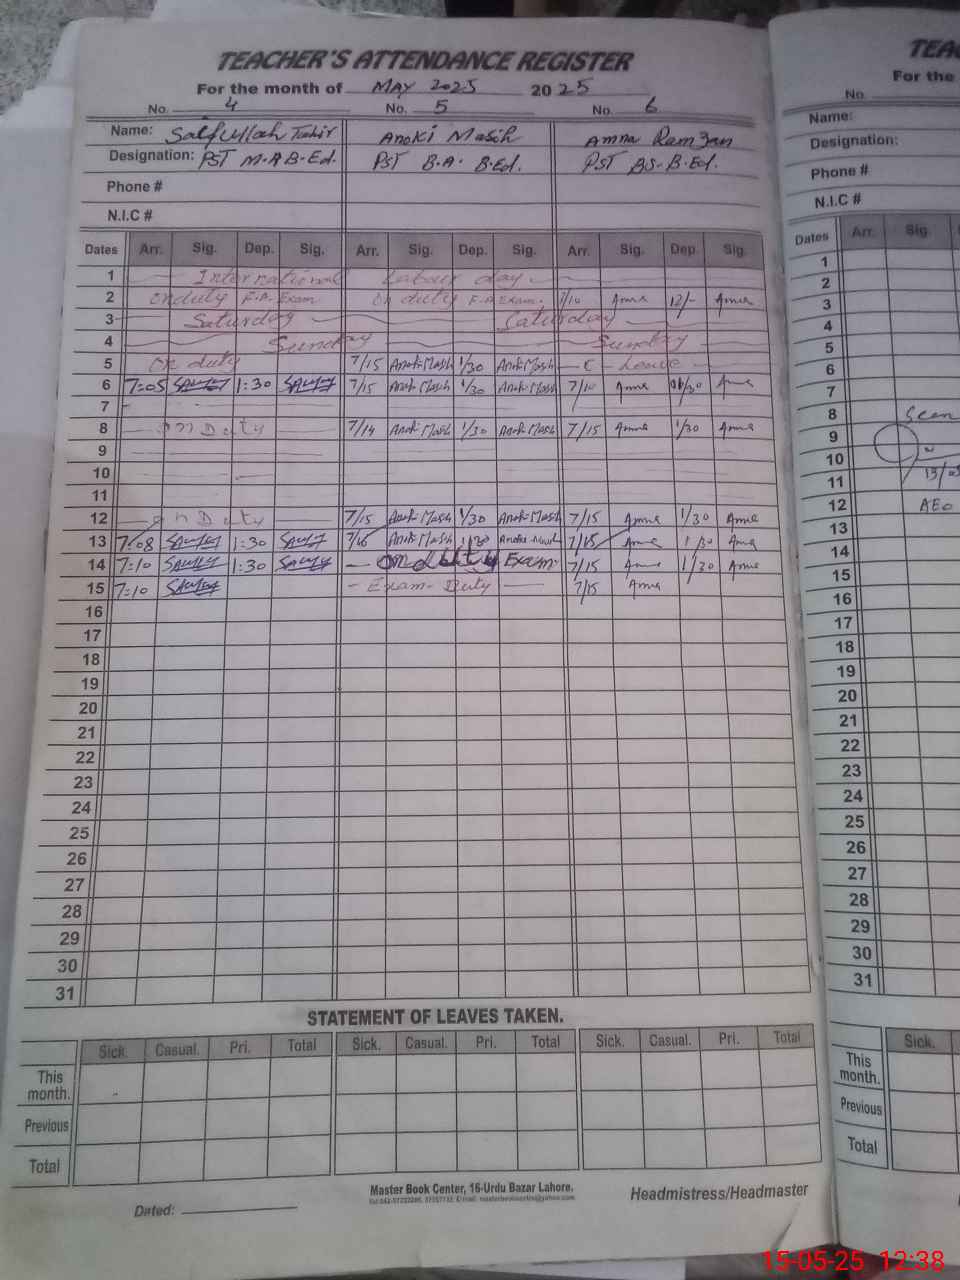 TEACHER'S ATTENDANCE REGISTER
For the month of MAY 2025 2025
No. 4 No. 5 No. 6
Name: Saifullah Tahir Anoki Masih Amna Ramzan
Designation: PST M.A B-Ed. PST B.A. B.Ed. PST BS-B.Ed.
Phone #
N.I.C #
Dates Arr. Sig. Dep. Sig. Arr. Sig. Dep. Sig. Arr. Sig. Dep. Sig.
1 International Labour day
2 on duty F.A. Exam on duty F.A Exam. 7/10 Amna 12/- Amna
3 Saturday Saturday
4 Sunday Sunday
5 on duty 7/15 Anoki Masih 1/30 Anoki Masih C - Leave
6 7:05 1:30 7/15 Anoki Masih 1/30 Anoki Masih 7/10 Amna 01/30 Amna
7
8 on Duty 7/14 Anoki Masih 1/30 Anoki Masih 7/15 Amna 1/30 Amna
9
10
11
12 on Duty 7/15 Anoki Masih 1/30 Anoki Masih 7/15 Amna 1/30 Amna
13 7:08 1:30 7/16 Anoki Masih 1/30 Anoki Masih 7/15 Amna 1/30 Amna
14 7:10 1:30 on duty Exam. 7/15 Amna 1/30 Amna
15 7:10 - Exam - Duty 7/15 Amna
16
17
18
19
20
21
22
23
24
25
26
27
28
29
30
31
STATEMENT OF LEAVES TAKEN.
Sick. Casual. Pri. Total Sick. Casual. Pri. Total Sick. Casual. Pri. Total
This month.
Previous
Total
Master Book Center, 16-Urdu Bazar Lahore.
Dated: Headmistress/Headmaster
TEAC
For the
No.
Name:
Designation:
Phone #
N.I.C #
Dates Arr. Sig.
1
2
3
4
5
6
7
8 Seen
9
10
11 13/05
12 AEO
13
14
15
16
17
18
19
20
21
22
23
24
25
26
27
28
29
30
31
Sick.
This month.
Previous
Total
15-05-25 12:38